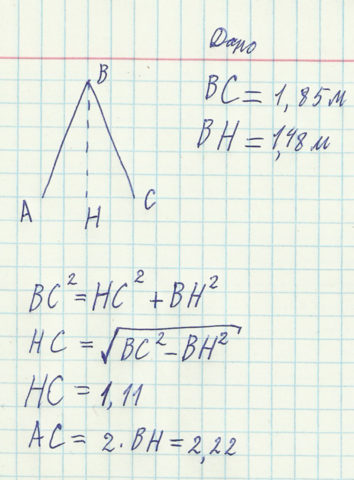 Дано
B
BC = 1,85 м
BH = 1,48 м
A
H
C
BC² = HC² + BH²
HC = √BC² − BH²
HC = 1,11
AC = 2 · BH = 2,22